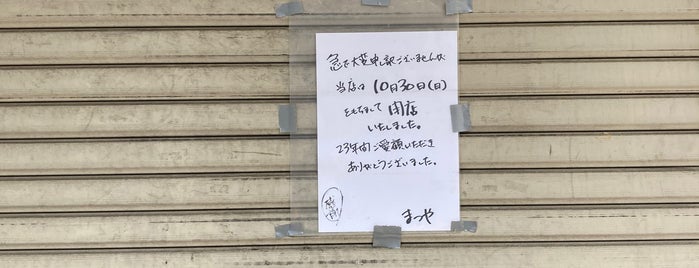 急で大変申し訳ございませんが
当店は10月30日(日)
をもちまして閉店
いたしました。
23年間ご愛顧いただき
ありがとうございました。
感謝
まつや